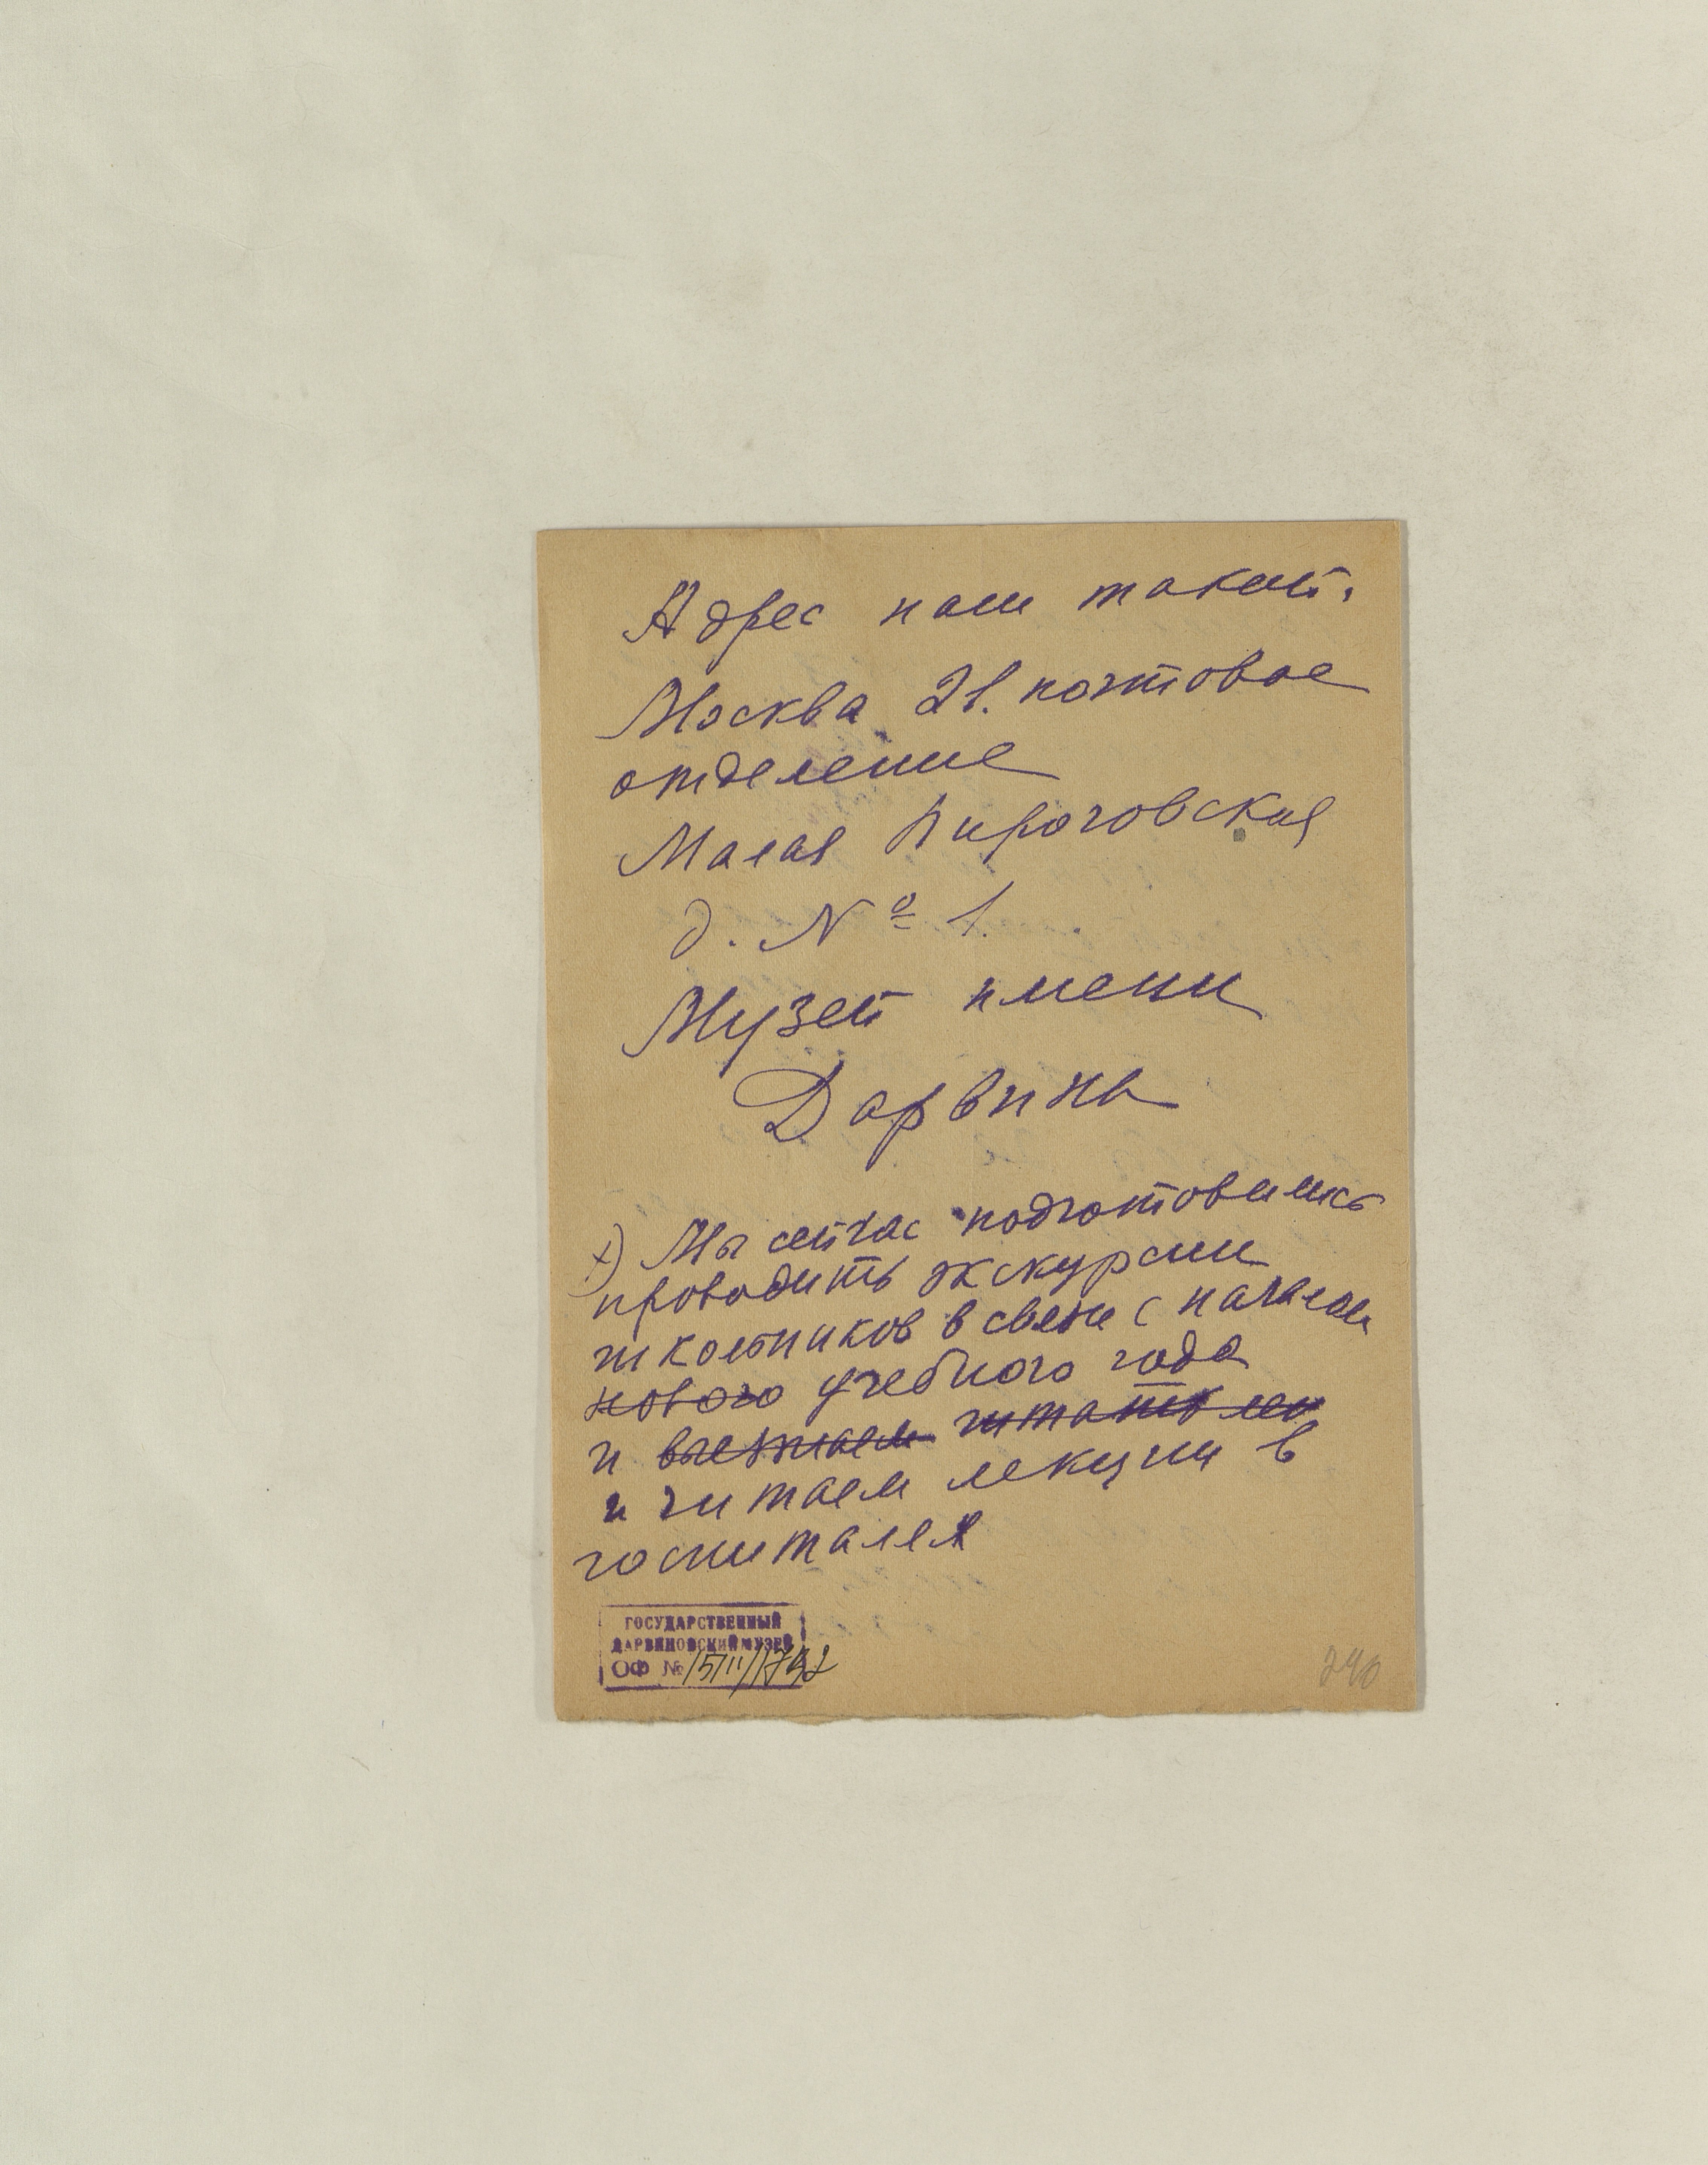 Адрес наш такой.
Москва 21. почтовое
отделение
Малая Пироговская
д. № 1.
Музей имени
Дарвина
х) Мы сейчас подготовились
проводить экскурсии
школьников в связи с началом
нового учебного года
и выезжаем читать лек
и читаем лекции в
госпиталях
ГОСУДАРСТВЕННЫЙ
ДАРВИНОВСКИЙ МУЗЕЙ
ОФ №
240